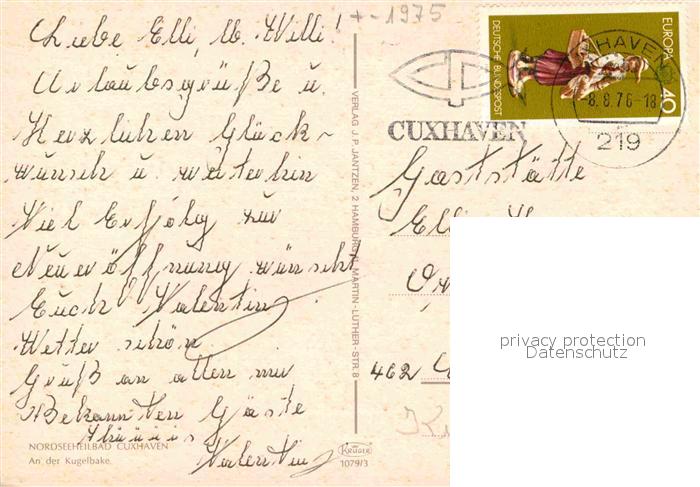 +-1975
Liebe Elli, lb. Willi!
Urlaubsgrüße u.
Herzlichen Glück-
wunsch u. weiterhin
Viel Erfolg zur
Neueröffnung wünscht
Euch Valentin
Wetter schön
Gruß an allen mir
Bekannten Gäste
Valentin
NORDSEEHEILBAD CUXHAVEN
An der Kugelbake
VERLAG J. P. JANTZEN, 2 HAMBURG MARTIN-LUTHER-STR. 8
KRÜGER
1079/3
DEUTSCHE BUNDESPOST
EUROPA
40
CUXHAVEN
-8.8.76-18
219
CUXHAVEN
Gaststätte
Elli
462
privacy protection
Datenschutz